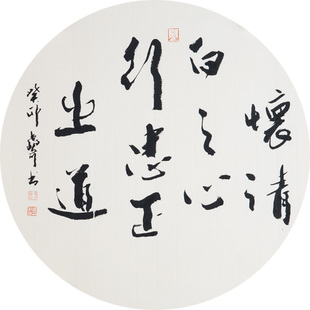 懷清
白之心
行忠正
之道
癸卯
书